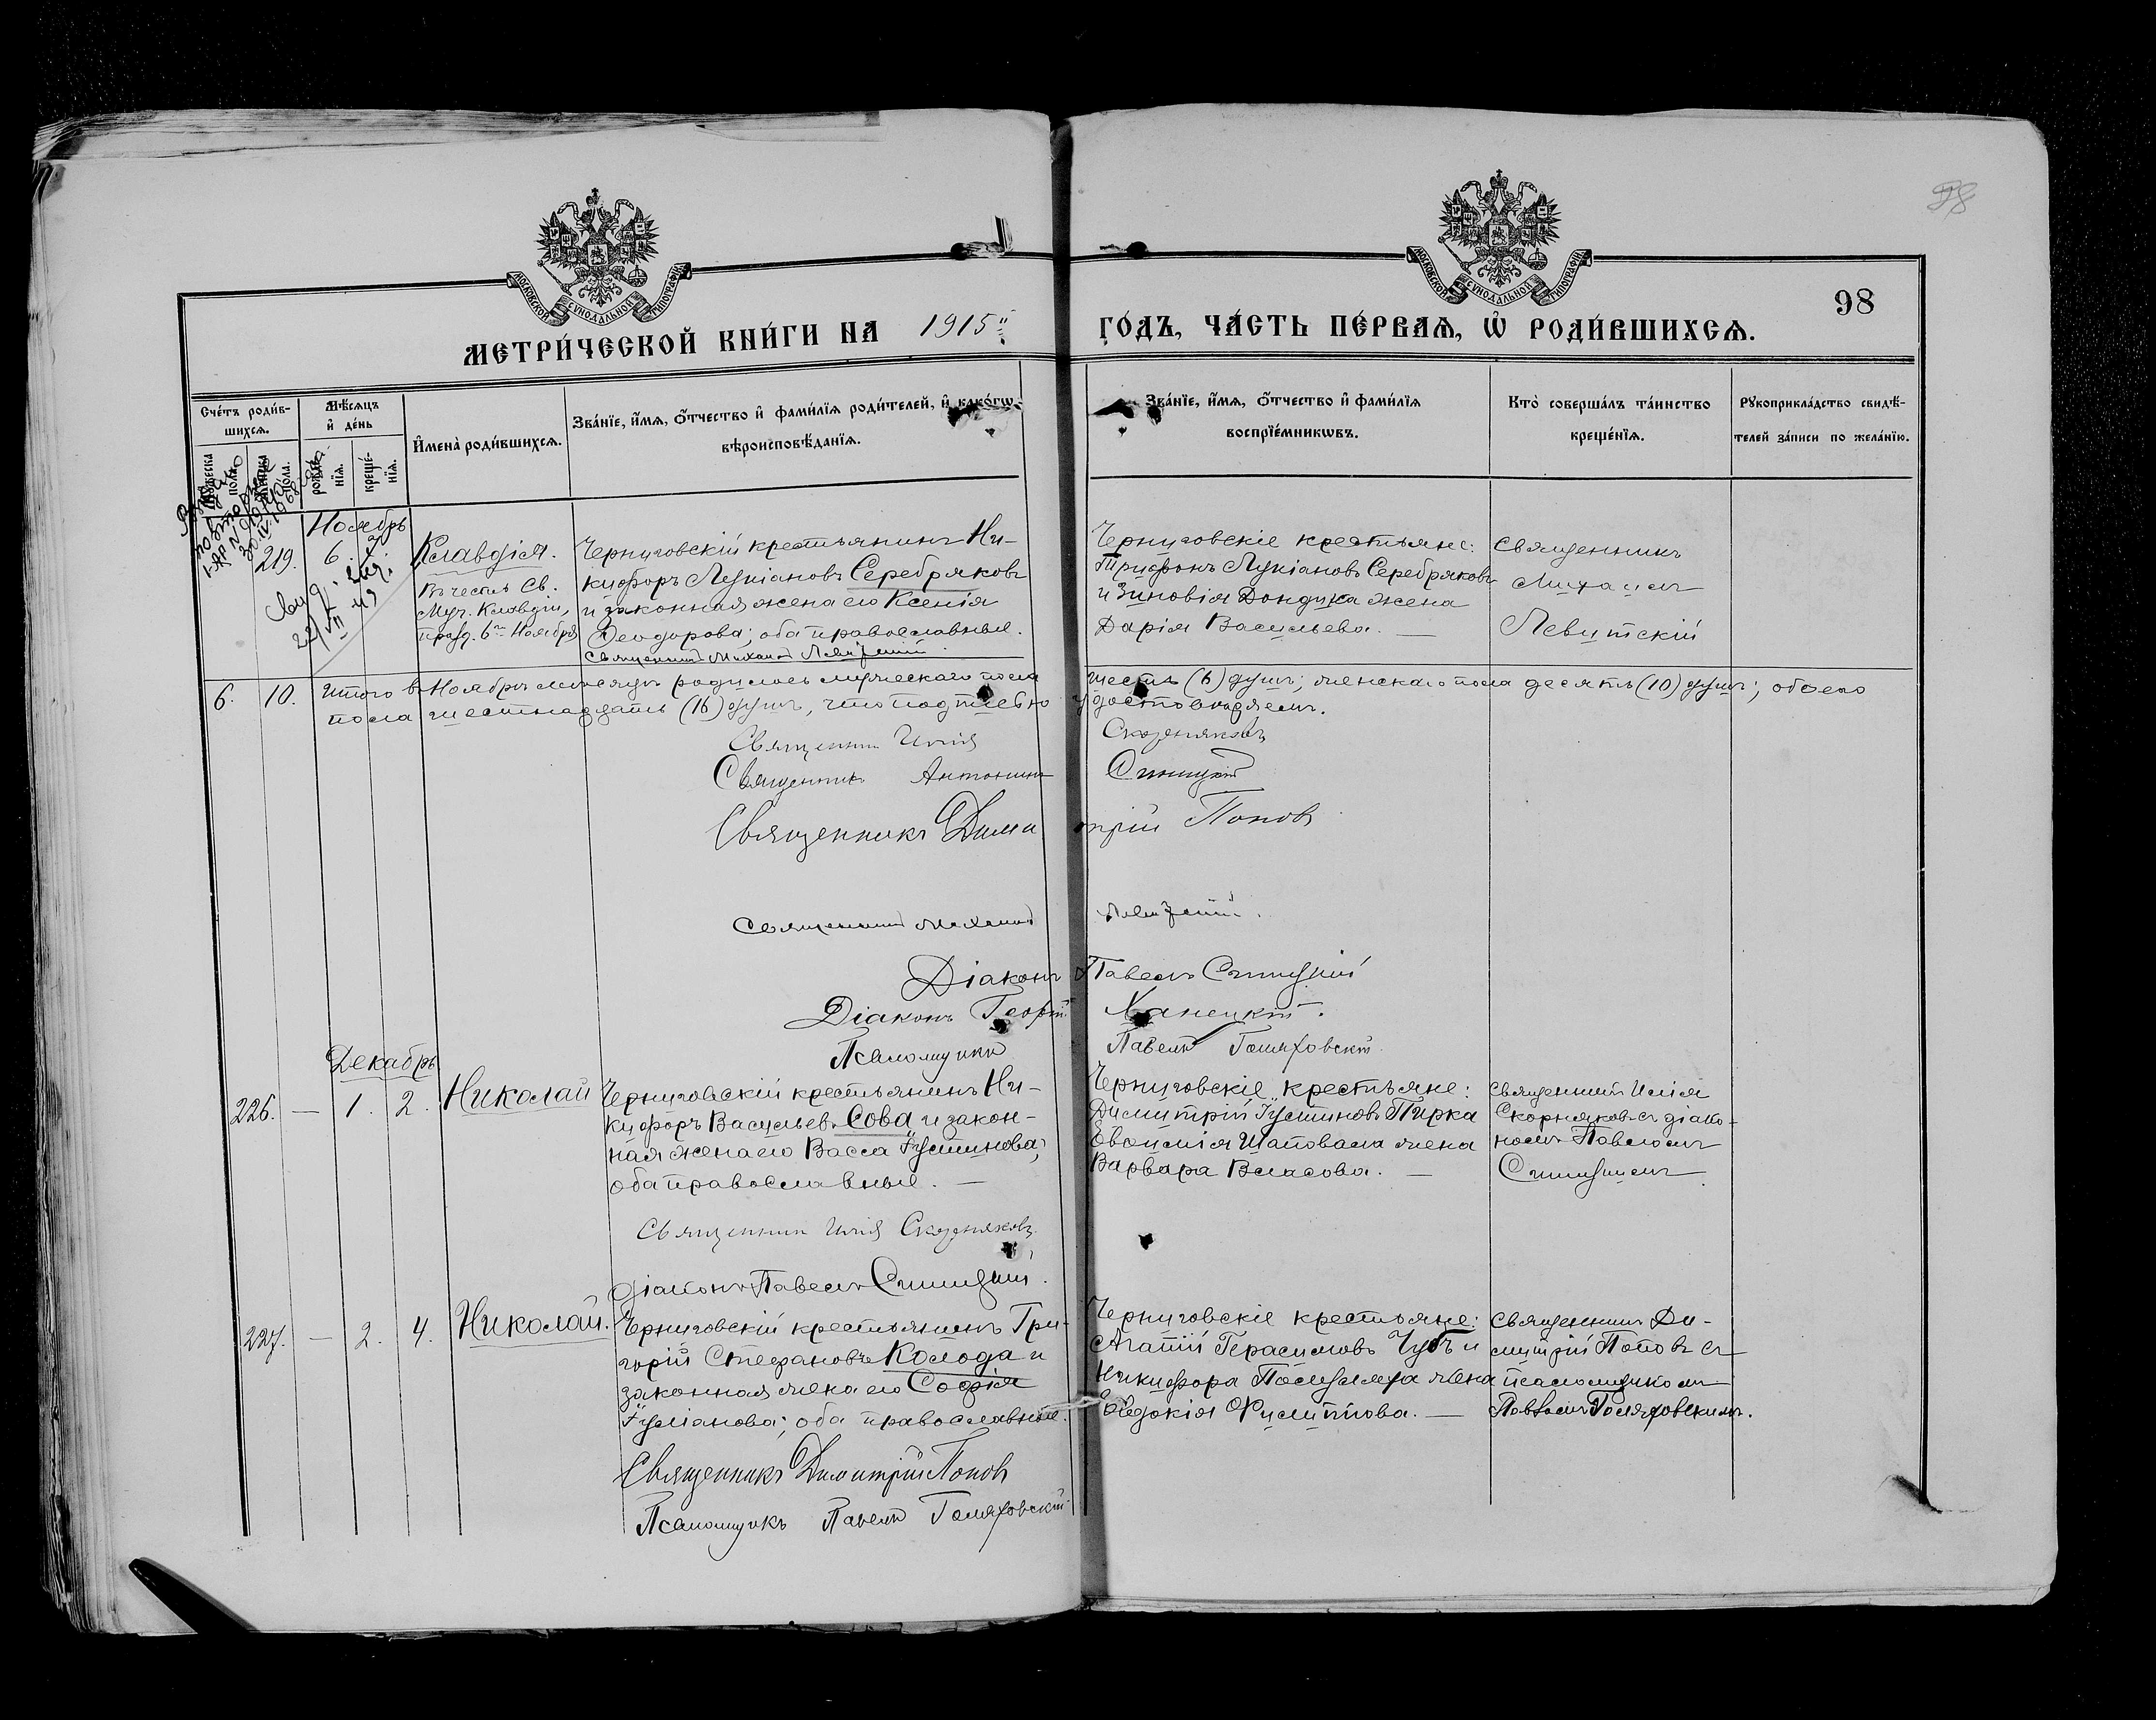 98
98
МОСКОВСКОЙ СУНОДАЛЬНОЙ ТИПОГРАФІИ
МОСКОВСКОЙ СУНОДАЛЬНОЙ ТИПОГРАФІИ
МЕТРИ́ЧЕСКОЙ КНИ́ГИ НА 1915й ГО́ДЪ, ЧА́СТЬ ПЕ́РВАѦ, Ѡ҆ РОДИ́ВШИХСѦ.
Сче́тъ роди́в-
шихсѧ.
Мѣ́сѧцъ
и҆ де́нь
И҆мена̀ роди́вшихсѧ.
Зва́нїе, и҆́мѧ, ѻ҆́тчество и҆ фами́лїѧ роди́телей, и҆ како́гѡ
вѣроисповѣ́данїѧ.
Зва́нїе, и҆́мѧ, ѻ҆́тчество и҆ фами́лїѧ
воспрїе́мникѡвъ.
Кто̀ соверша́лъ та́инство
креще́нїѧ.
Рꙋкоприкла́дство свидѣ́-
телей за́писи по жела́нїю.
Мꙋжеска
по́ла.
Же́нска
по́ла.
рожде́-
нїѧ.
креще́-
нїѧ.
Ноябрь
219. 6. 7.
Клавдія.
Въ честь Св.
Муч. Клавдіи,
празд. 6го Ноября
Черниговскій крестьянинъ Ни-
кифоръ Лукіановъ Серебряковъ
и законная жена его Ксенія
Ѳеодорова; оба православные.
Священникъ Михаилъ Левитскій
Черниговскіе крестьяне:
Трифонъ Лукіановъ Серебряковъ
и Зиновія Дондика жена
Дарія Васильева. —
Священникъ
Михаилъ
Левитскій
6. 10. Итого въ Ноябрѣ мѣсяцѣ родилось мужескаго пола шесть (6) душъ; женскаго пола десять (10) душъ; обоего
пола шестнадцать (16) душъ, что подписью удостовѣряемъ.
Священникъ Илія Скорняковъ
Священникъ Антонинъ Синицкій
Священникъ Димитрій Поповъ
Священникъ Михаилъ Левитскій.
Діаконъ Павелъ Синицкій
Діаконъ Георгій Ханецкій.
Псаломщикъ Павелъ Голяховскій.
Декабрь
226. — 1. 2. Николай
Черниговскій крестьянинъ Ни-
кифоръ Васильевъ Сова и закон-
ная жена его Васса Іустинова;
оба православные. —
Священникъ Илія Скорняковъ
Діаконъ Павелъ Синицкій.
Черниговскіе крестьяне:
Димитрій Іустиновъ Пирка
Евѳимія Шаповала жена
Варвара Власова. —
Священникъ Илія
Скорняковъ съ діако-
номъ Павломъ
Синицкимъ.
227. — 2. 4. Николай.
Черниговскій крестьянинъ Гри-
горій Стефановъ Колода и
законная жена его Софія
Іуліанова; оба православные.
Священникъ Димитрій Поповъ
Псаломщикъ Павелъ Голяховскій
Черниговскіе крестьяне:
Агапій Герасимовъ Чубъ и
Никифора жена
Евдокія Филиппова. —
Священникъ Ди-
митрій Поповъ съ
псаломщикомъ
Павломъ Голяховскимъ.